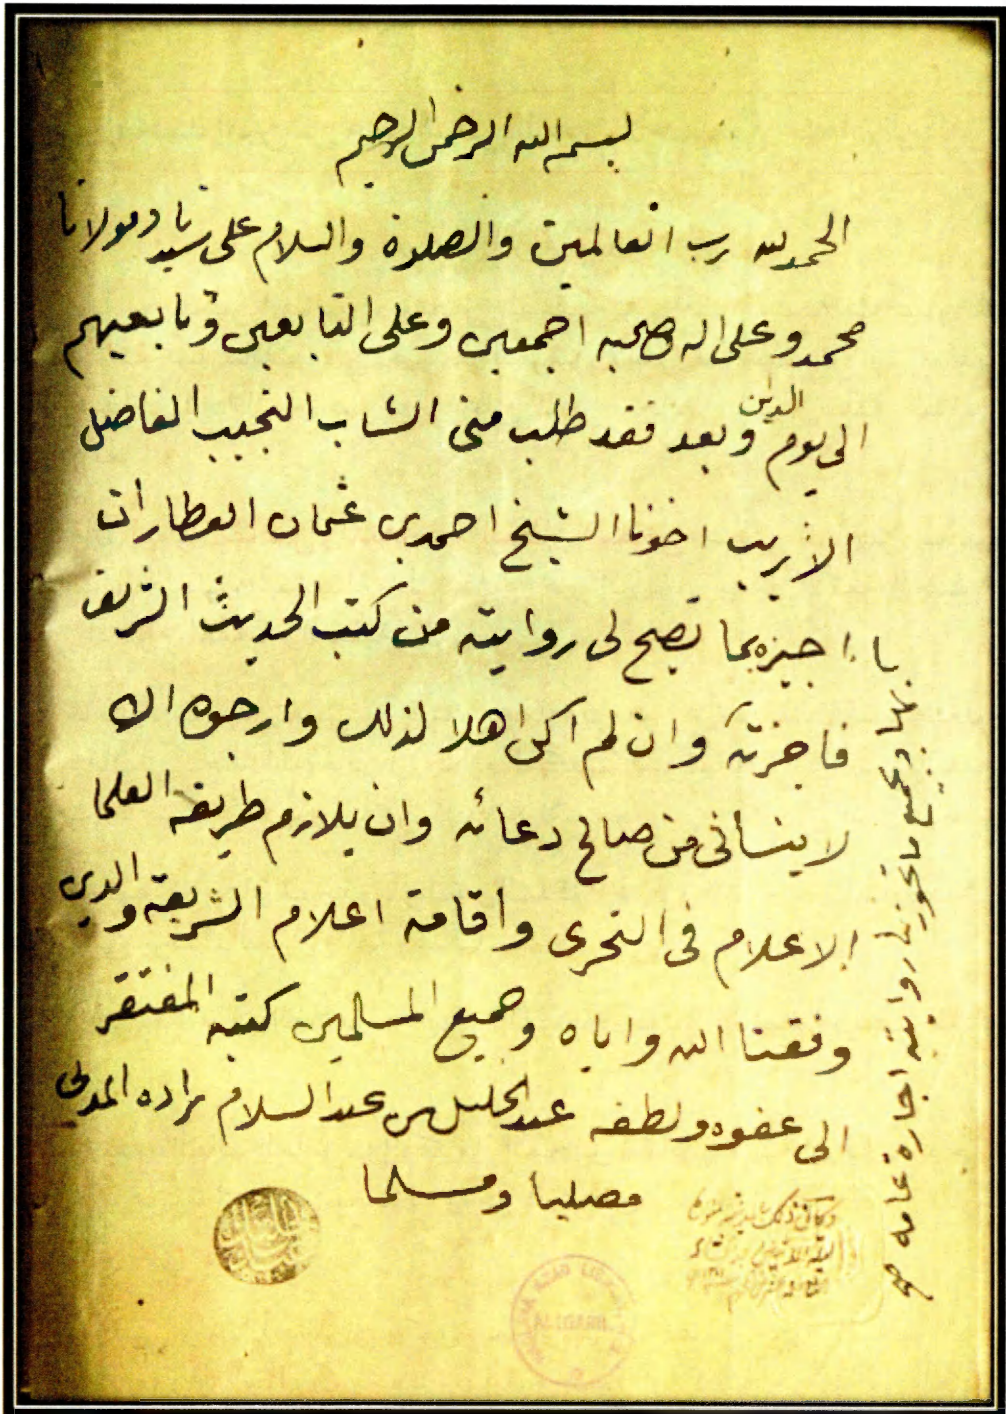 بسم الله الرحمن الرحيم
الحمد لله رب العالمين والصلوة والسلام على سيدنا ومولانا
محمد وعلى اله وصحبه اجمعين وعلى التابعين وتابعيهم
الى يوم الدين وبعد فقد طلب منى الشاب النجيب الفاضل
الاريب اخونا الشيخ احمد بن عثمان العطار ان
اجيزه بما تصح لى روايته من كتب الحديث الشريف
فاجزته وان لم اكن اهلا لذلك وارجوه ان
لا ينسانى من صالح دعائه وان يلازم طريقة العلما
الاعلام فى التحرى واقامة اعلام الشريعة والدين
وفقنا الله واياه وجميع المسلمين كتبه المفتقر
الى عفوه ولطفه عبد الجليل بن عبد السلام براده المدنى
مصليا ومسلما
بها وبجميع ما تجوز لى روايته اجازة عامه صح
وكان ذلك
ALIGARH